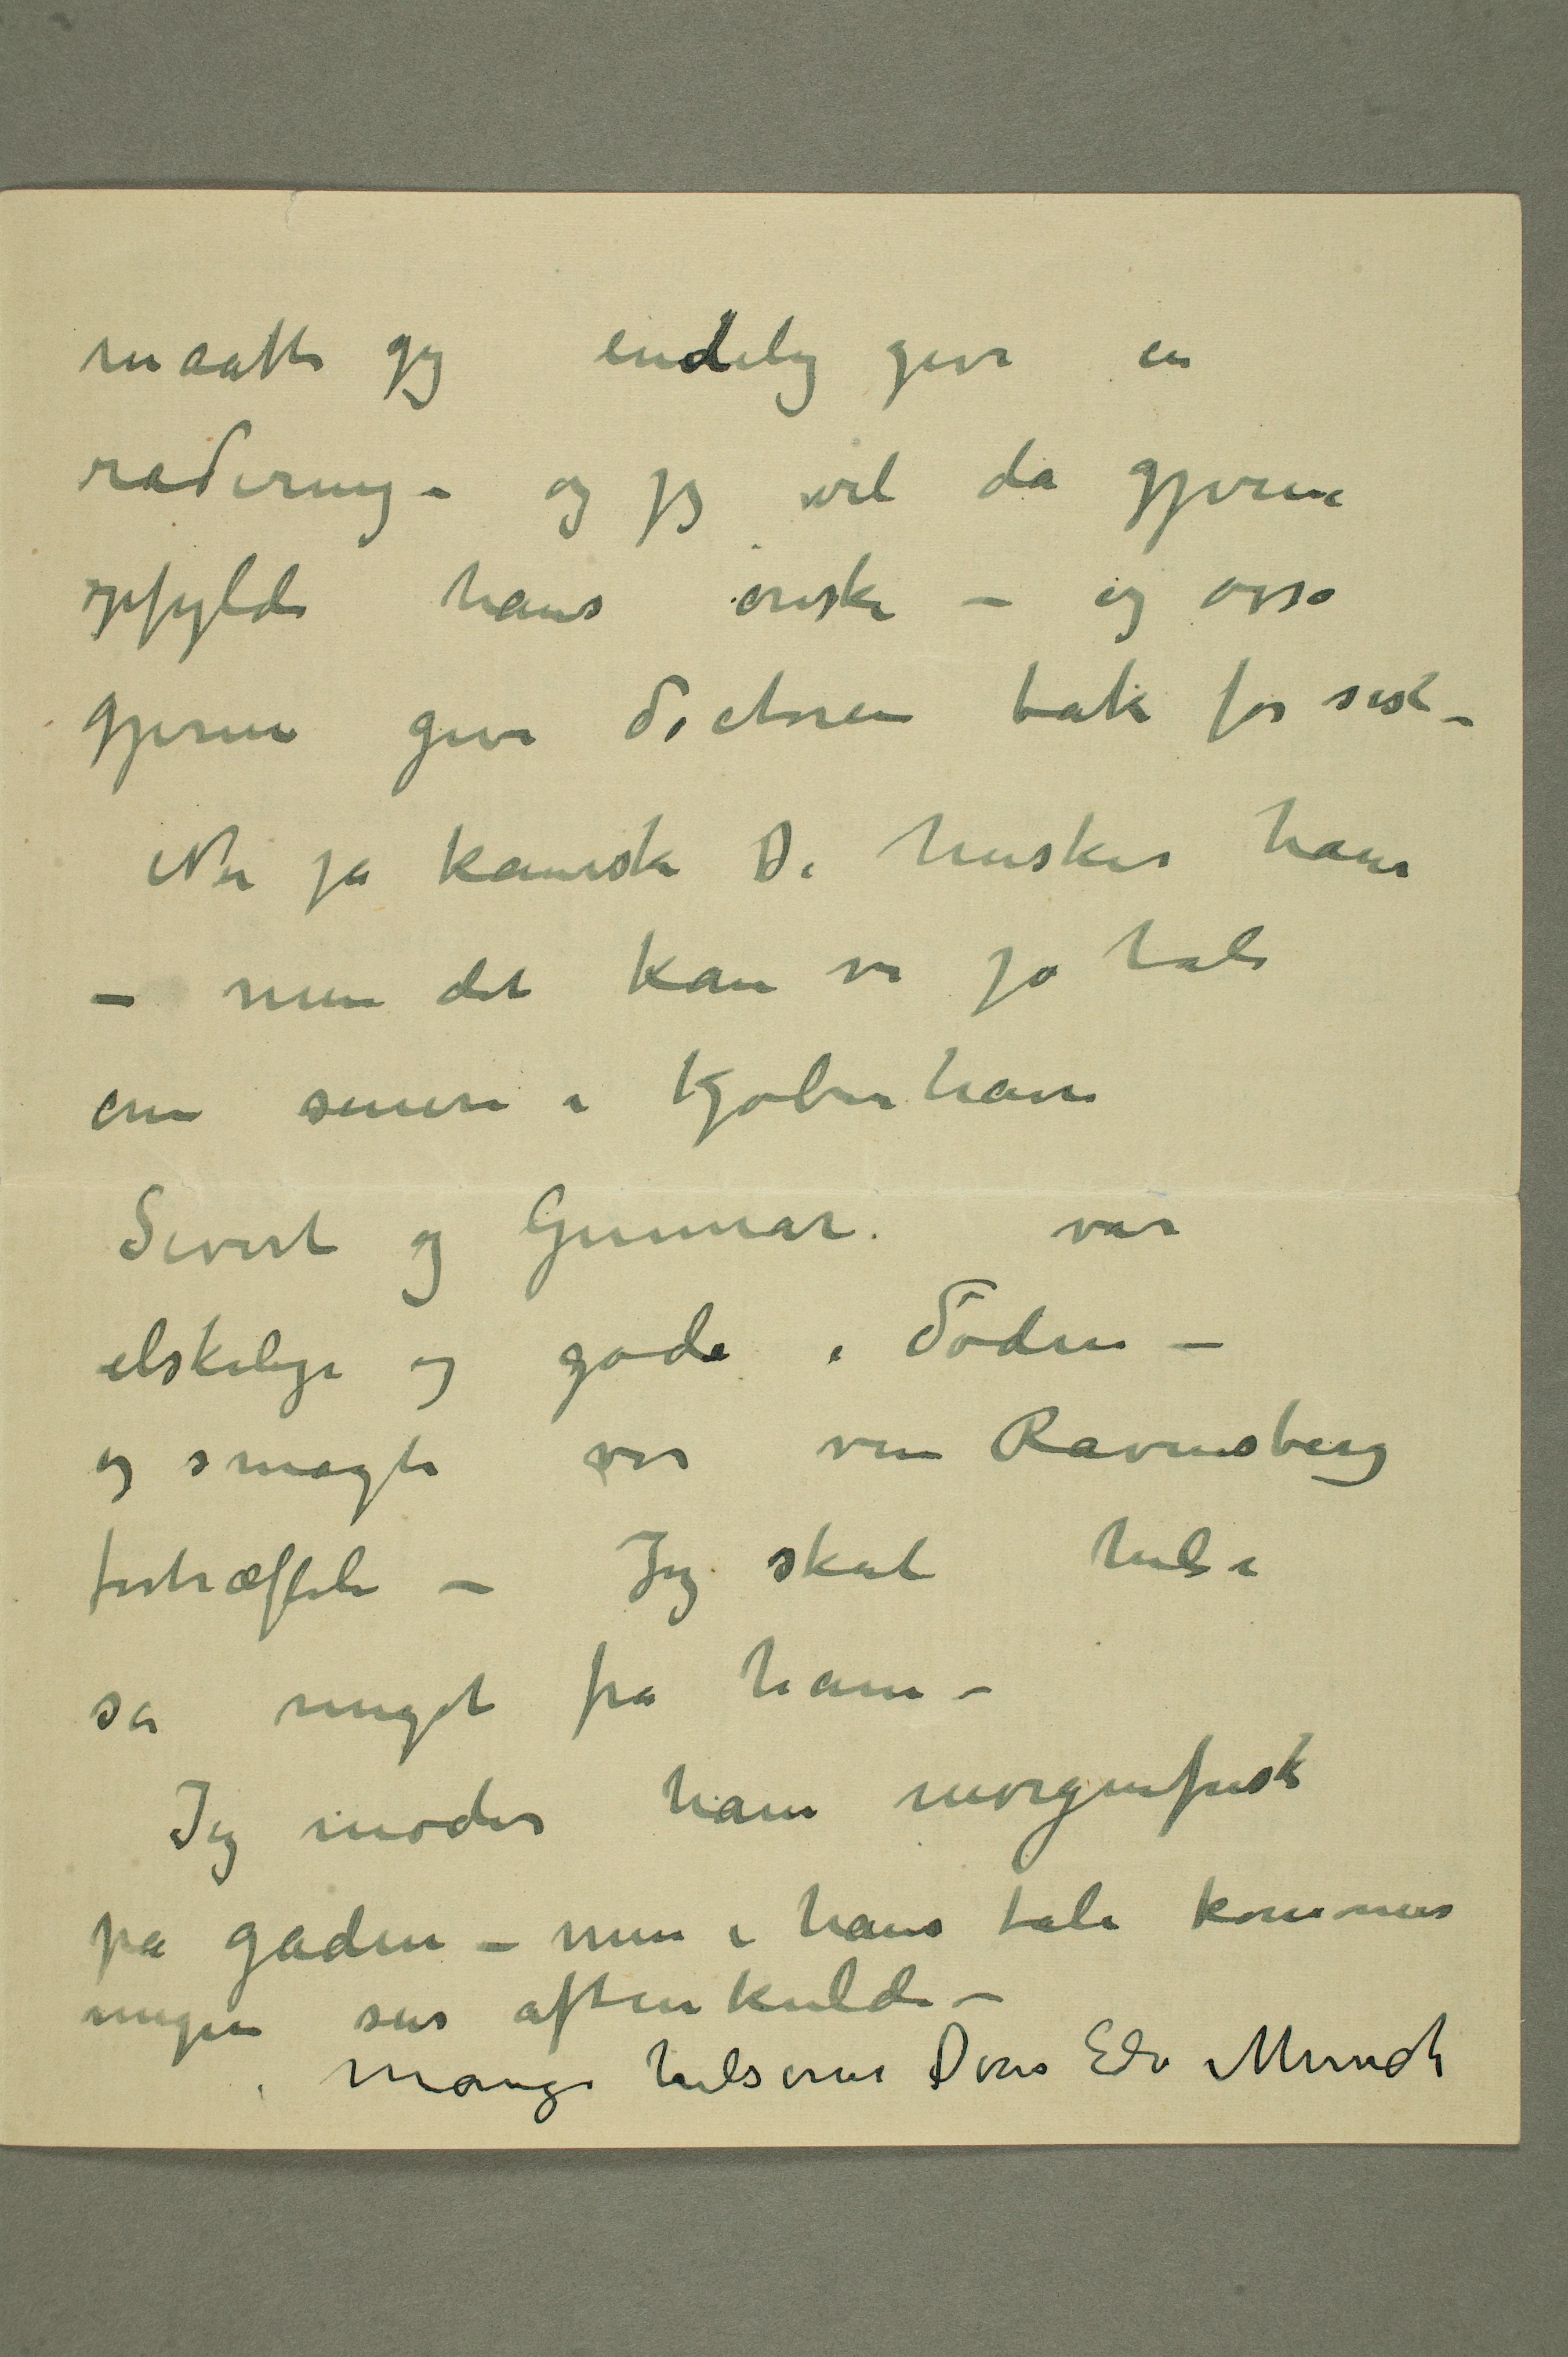 maatte jeg endelig give en
radering – og jeg vil da gjerne
opfylde hans ønske – og osså
gjerne give doctoren tak for sist –
Nu ja kanske De husker ham
– men det kan vi jo tale
om senere i Kjøbenhavn
Sivert og Gunnar. var
elskelige og gode i døden –
og smagte vor ven Ravensberg
fortræffeli – Jeg skal hilse
så meget fra ham –
Jeg møder ham morgenfrisk
på gaden – men i hans tale kommer
megen sus aftenkulde –
Mange hilsener Deres Edv Munch